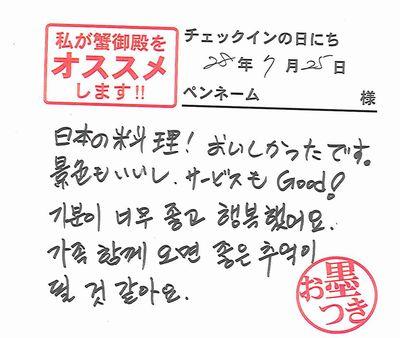 私が蟹御殿を
オススメ
します!!
チェックインの日にち
28年7月25日
ペンネーム 様
日本の料理! おいしかったです。
景色もいいし、サービスも Good!
기분이 너무 좋고 행복했어요.
가족 함께 오면 좋은 추억이
될 것 같아요.
お墨つき